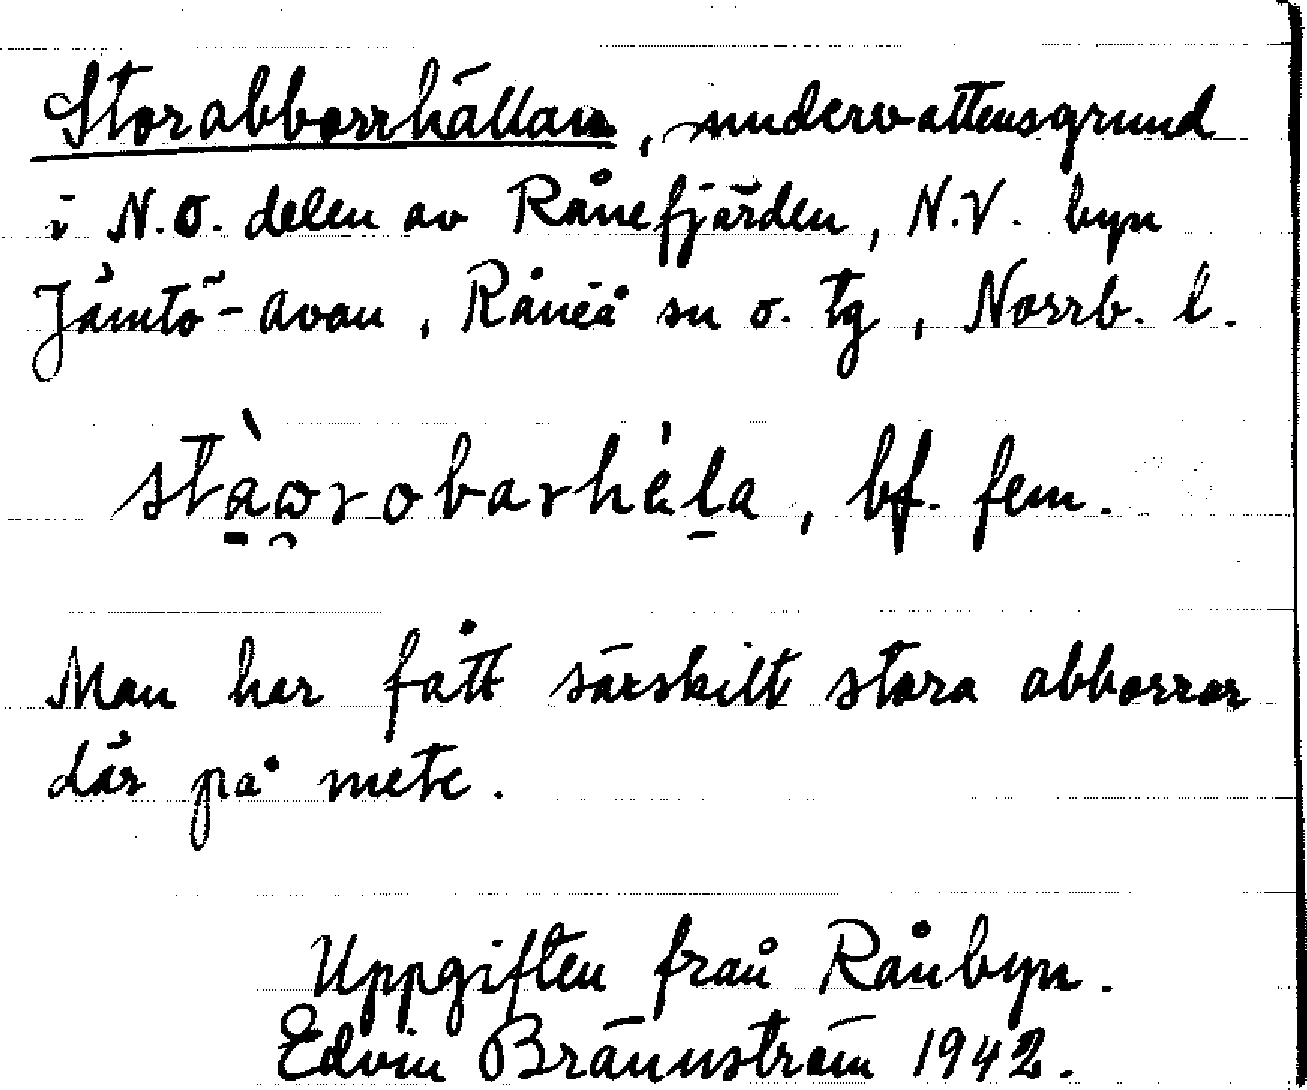 Storabborrhällan, undervattensgrund
i N.O. delen av Rånefjärden, N.V. byn
Jämtö-Avan, Råneå sn o. tg, Norrb. l.
stàɷrobarhàla, bf. fem.
Man har fått särskilt stora abborrar
där på mete.
Uppgiften från Rånbyn.
Edvin Brännström 1942.